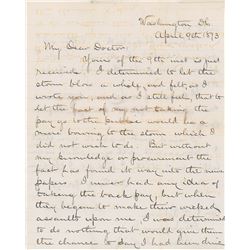 Washington DC.
April 9th 1873
My Dear Doctor:
Yours of the 9th inst is just
received. I determined to let the
storm blow a while, and felt, as I
wrote you, and as I still felt, that to
let the fact of my not taking the
pay go to the public would be a
mere bowing to the storm which I
did not wish to do. But without
my knowledge or procurement the
fact has found its way into the news
papers. I never had any idea of
taking the back pay, but when
they began to make their wicked
assaults upon me I was determined
to do nothing that would give them
the chance to say I had been driven